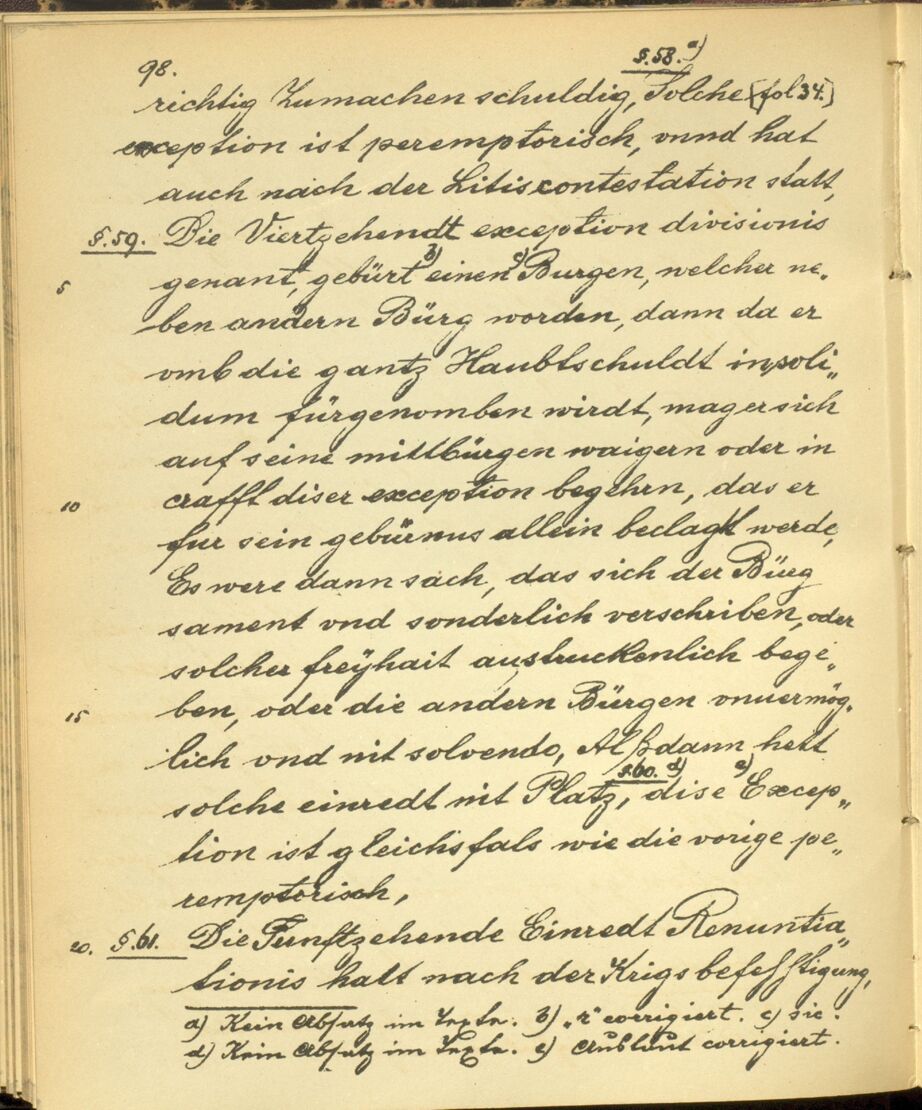 98.
§.58. a)
richtig Zumachen schuldig, Solche [fol 34.]
exception ist peremptorisch, vnnd hat
auch nach der Litiscontestation statt,
§.59. Die Viertzehendt exception divisionis
5 genant, gebürt b) einen c) Burgen, welcher ne„
ben andern Bürg worden, dann da er
vmb die gantz Haubtschuldt in soli„
dum fürgenomben wirdt, mag er sich
auf seine mittbürgen waigern oder in
10 crafft diser exception begehrn, das er
fur sein gebürnus allein beclagt werde,
Es were dann sach, das sich der Bürg
sament vnd sonderlich verschriben, oder
solcher freÿhait austruckenlich bege„
15 ben, oder die andern Bürgen vnuermög„
lich vnd nit solvendo, Alßdann hett
solche einredt nit Platz, §.60. d) dise e) Excep„
tion ist gleichsfals wie die vorige pe„
remptorisch,
20. §.61. Die Funftzehende Einredt Renuntia„
tionis hatt nach der Krigsbefesstigung,
a) Kein Absatz im Texte. b) „r" corrigiert. c) sic.
d) Kein Absatz im Texte. e) corrigiert.